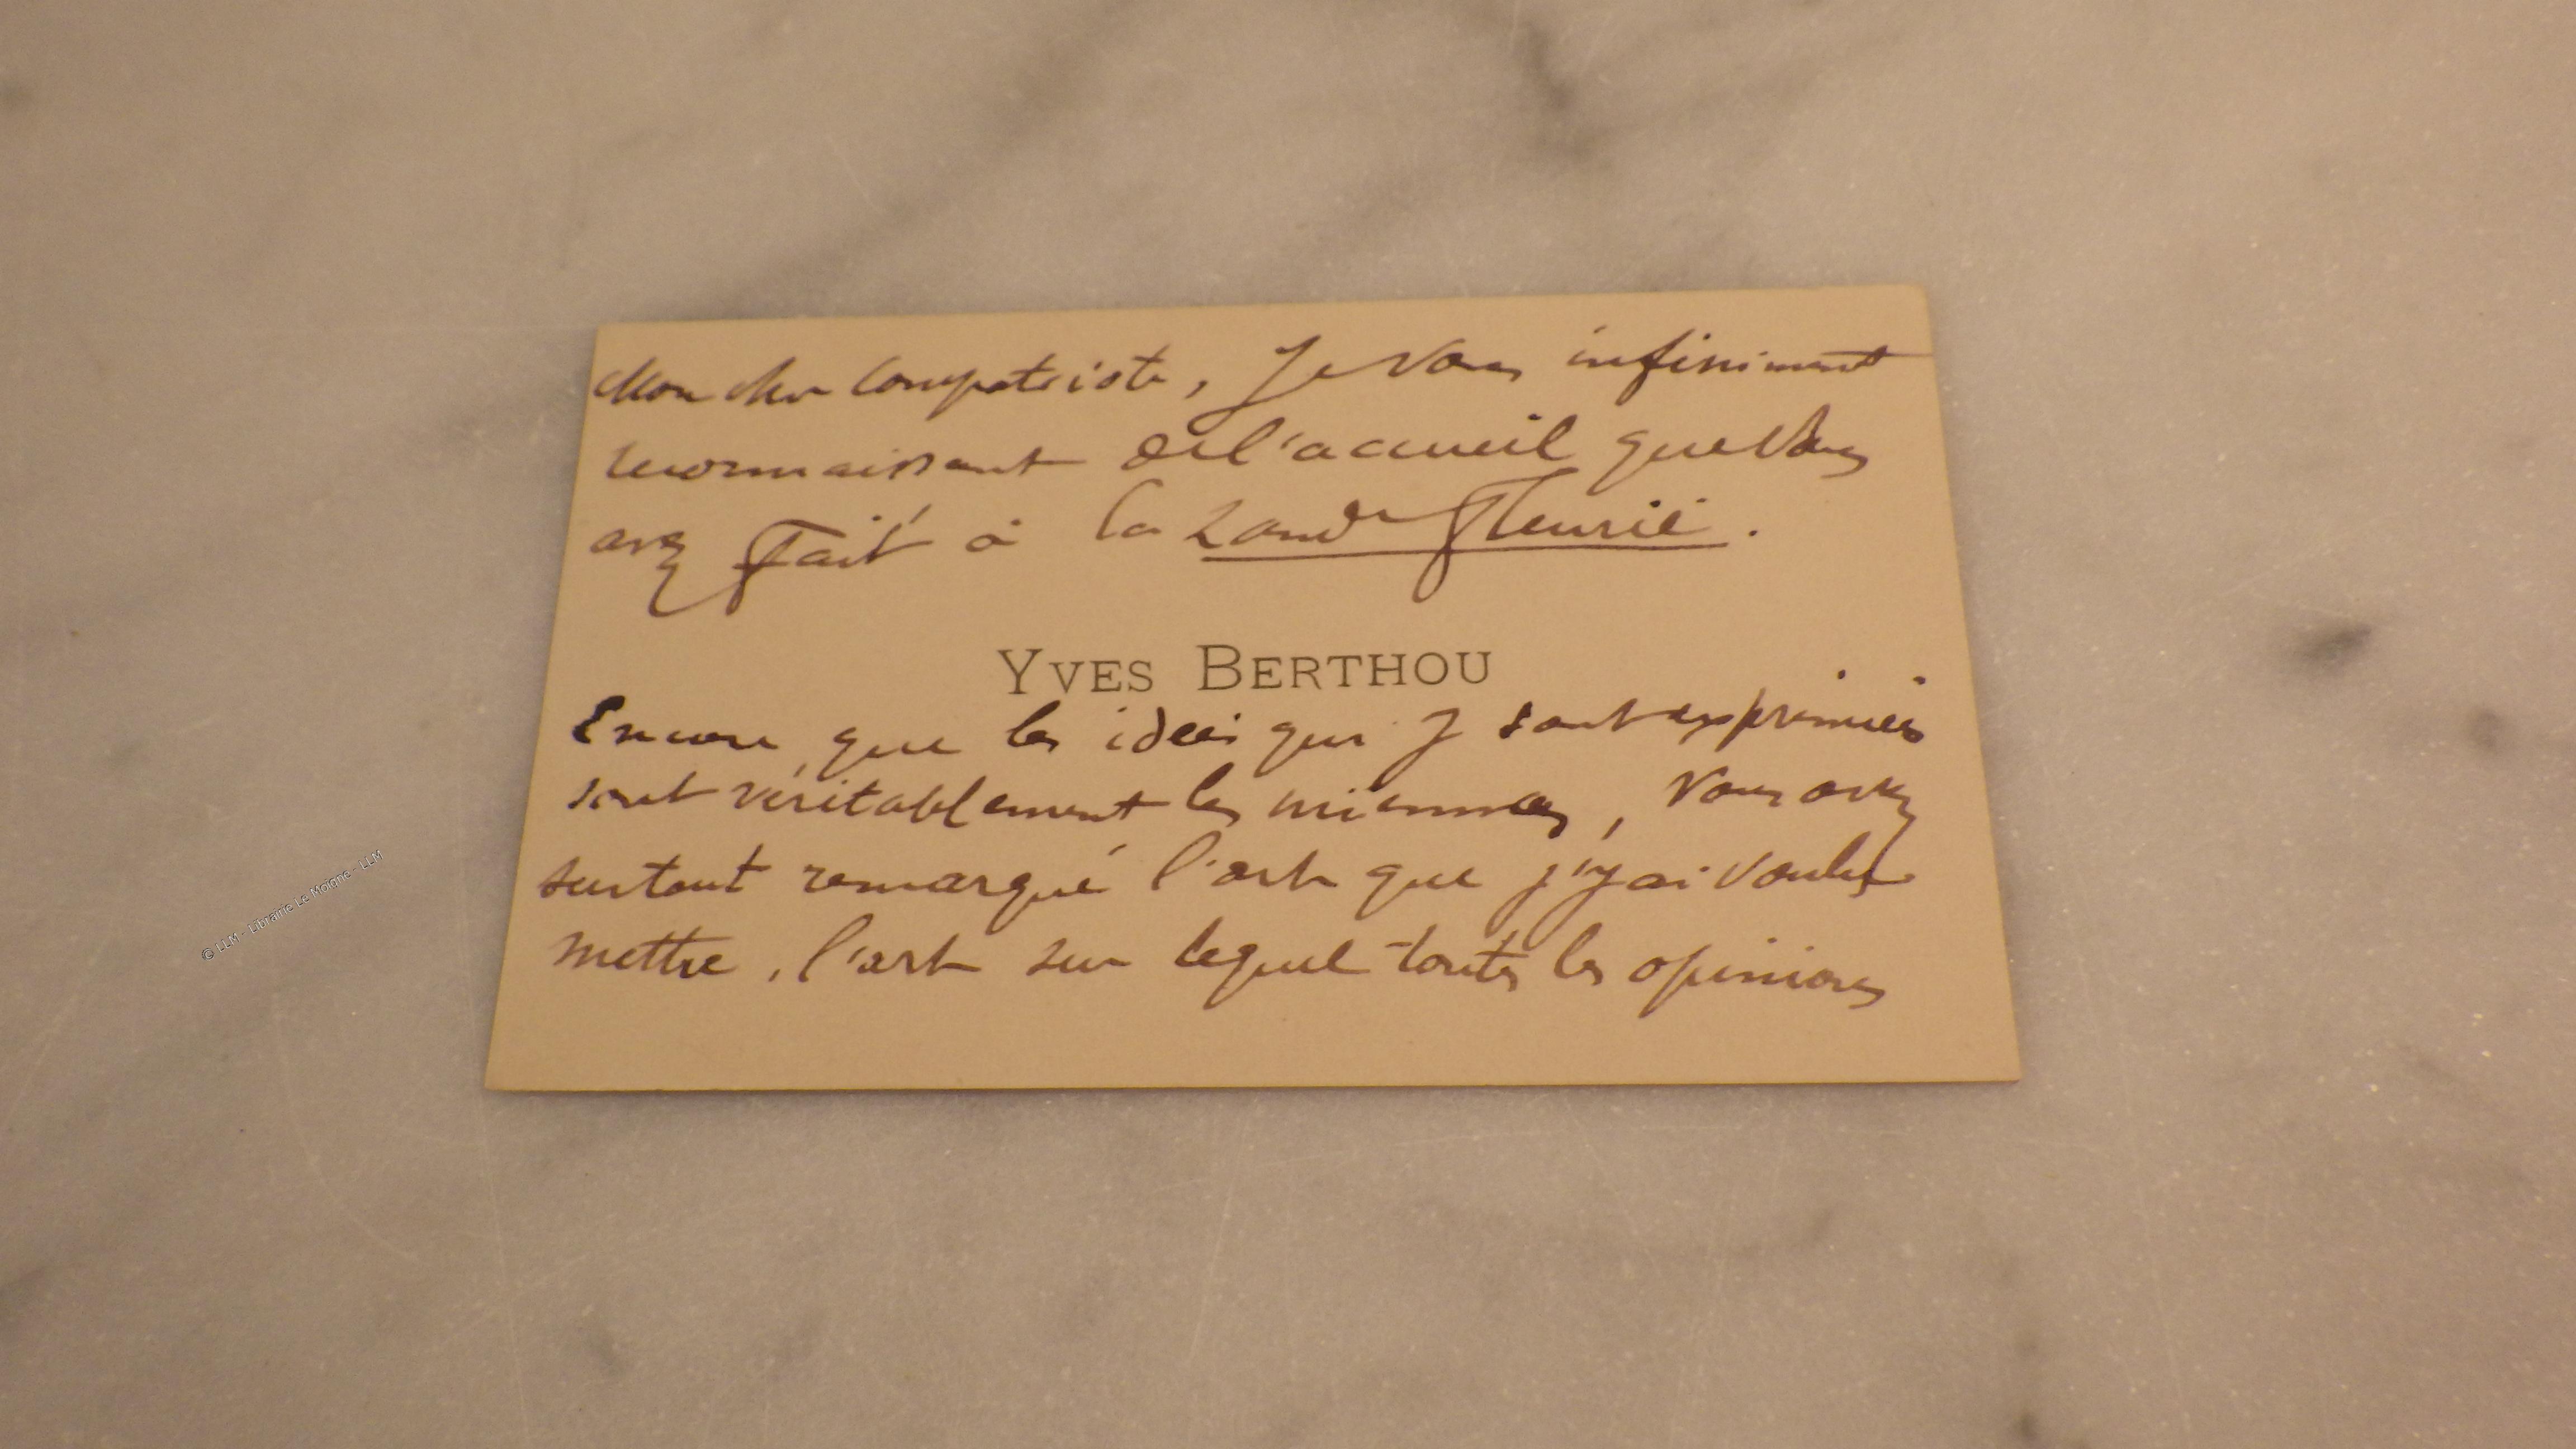 Mon cher compatriote, Je vous infiniment
reconnaissant de l'accueil que vous
avez fait à la Lande fleurie.
YVES BERTHOU
Encore que les idées qui y sont exprimées
sont véritablement les miennes, vous avez
surtout remarqué l'art que j'y ai voulu
mettre, l'art sur lequel toutes les opinions
© LLM - Librairie Le Moigne - LLM